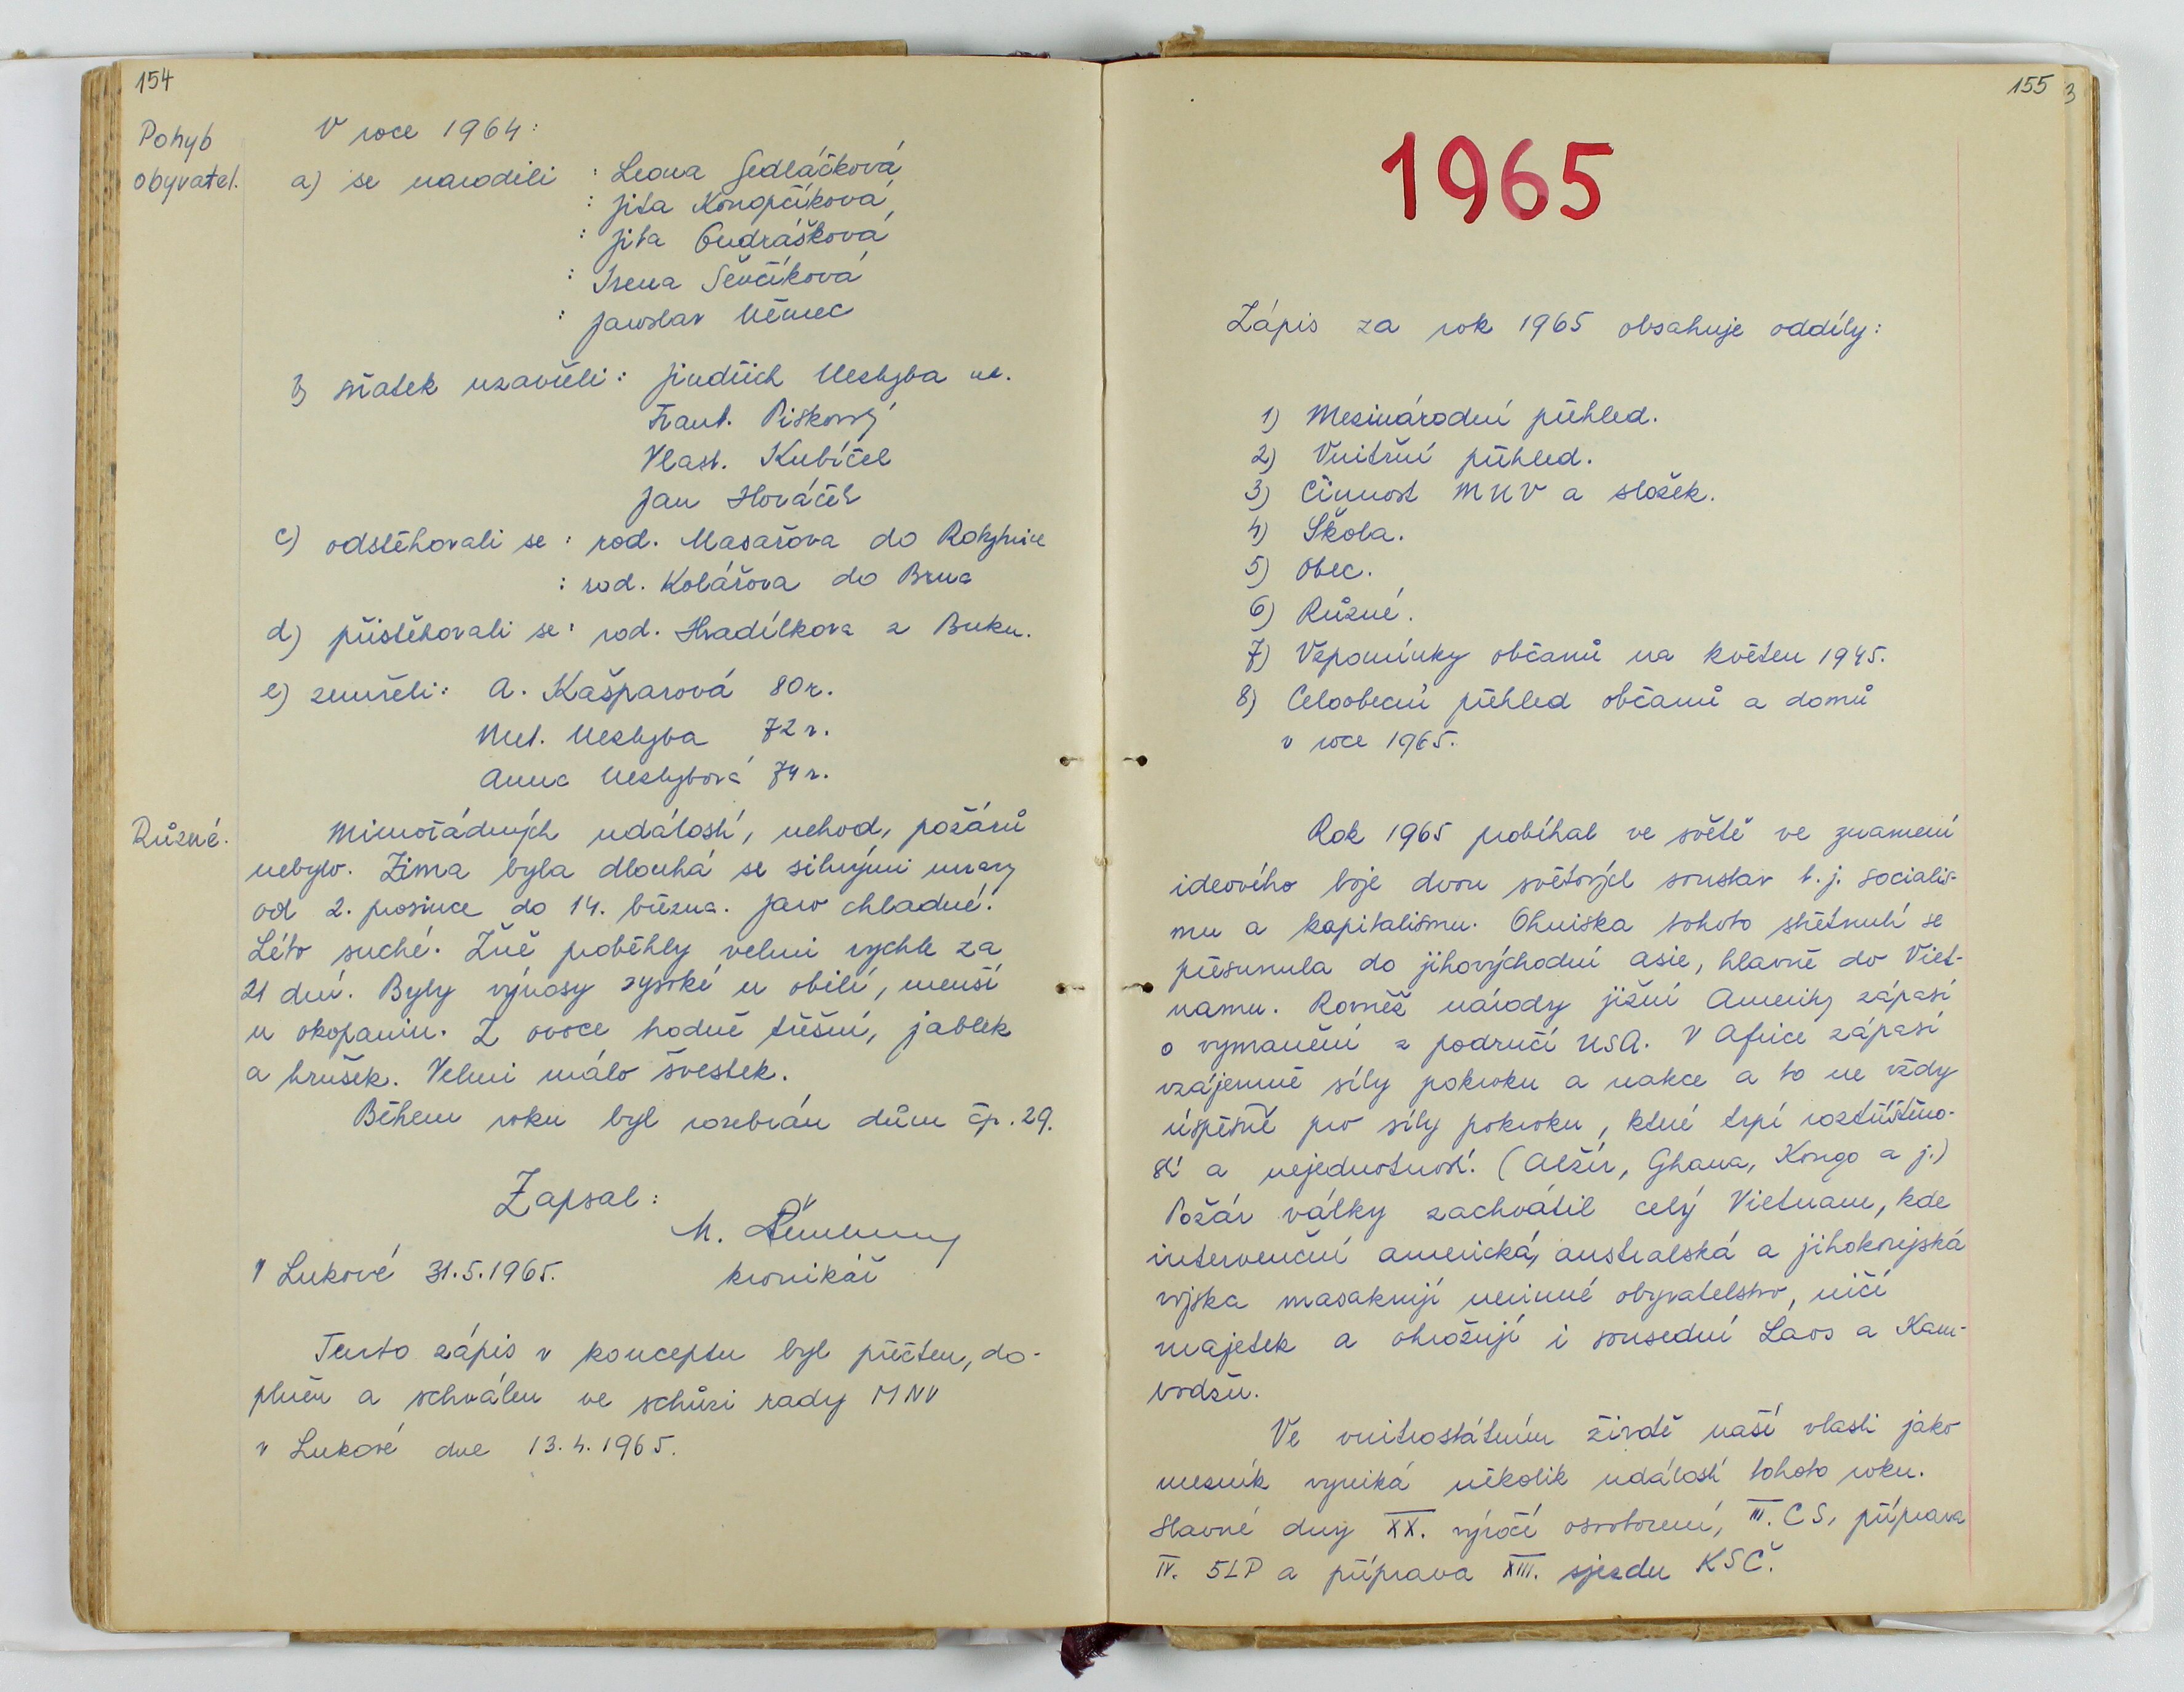 154
Pohyb
obyvatel.
V roce 1964:
a) se narodili : Leona Sedláčková
: Jita Konopčíková
: Jita Ondrášková
: Irena Ševčíková
: Jaroslav Němec
b) sňatek uzavřeli: Jindřich Neshyba ml.
Frant. Piskovský
Vlast. Kubíček
Jan Horáček
c) odstěhovali se : rod. Masařova do Rokytnice
: rod. Kolářova do Brna
d) přistěhovali se: rod. Hradílkova z Buku.
e) zemřeli: A. Kašparová 80 r.
Met. Neshyba 72 r.
Anna Neshybová 74 r.
Různé.
Mimořádných událostí, nehod, požárů
nebylo. Zima byla dlouhá se silnými mrazy
od 2. prosince do 14. března. Jaro chladné.
Léto suché. Žně proběhly velmi rychle za
21 dní. Byly výnosy vysoké u obilí, menší
u okopanin. Z ovoce hodně třešní, jablek
a hrušek. Velmi málo švestek.
Během roku byl rozebrán dům čp. 29.
Zapsal:
M.
V Lukové 31.5.1965.
kronikář
Tento zápis v konceptu byl přečten, do-
plněn a schválen ve schůzi rady MNV
v Lukové dne 13.4.1965.
155
3
1965
Zápis za rok 1965 obsahuje oddíly:
1) Mezinárodní přehled.
2) Vnitřní přehled.
3) Činnost MNV a složek.
4) Škola.
5) Obec.
6) Různé.
7) Vzpomínky občanů na květen 1945.
8) Celoobecní přehled občanů a domů
v roce 1965.
Rok 1965 probíhal ve světě ve znamení
ideového boje dvou světových soustav t.j. socialis-
mu a kapitalismu. Ohniska tohoto střetnutí se
přesunula do jihovýchodní Asie, hlavně do Viet-
namu. Rovněž národy jižní Ameriky zápasí
o vymanění z područí USA. V Africe zápasí
vzájemně síly pokroku a reakce a to ne vždy
úspěšně pro síly pokroku, které trpí roztříštěno-
stí a nejednotností. (Alžír, Ghana, Kongo a j.)
Požár války zachvátil celý Vietnam, kde
intervenční americká, australská a jihokorejská
vojska masakrují nevinné obyvatelstvo, ničí
majetek a ohrožují i sousední Laos a Kam-
bodžu.
Ve vnitrostátním životě naší vlasti jako
mezník vyniká několik událostí tohoto roku.
Slavné dny XX. výročí osvobození, III. CS, příprava
IV. 5LP a příprava XIII. sjezdu KSČ.